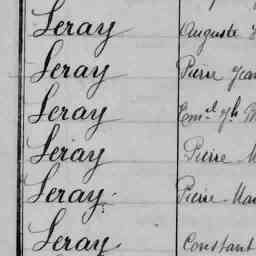 Leray Auguste
Leray Pierre Jean
Leray Em.el Jh
Leray Pierre M
Leray Pierre Mar
Leray Constant